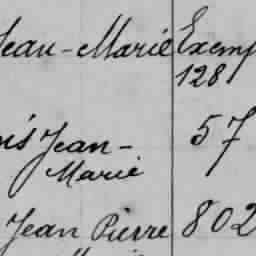 Jean-Marie Exemp
128
is Jean- 57
Marie
Jean Pierre 802